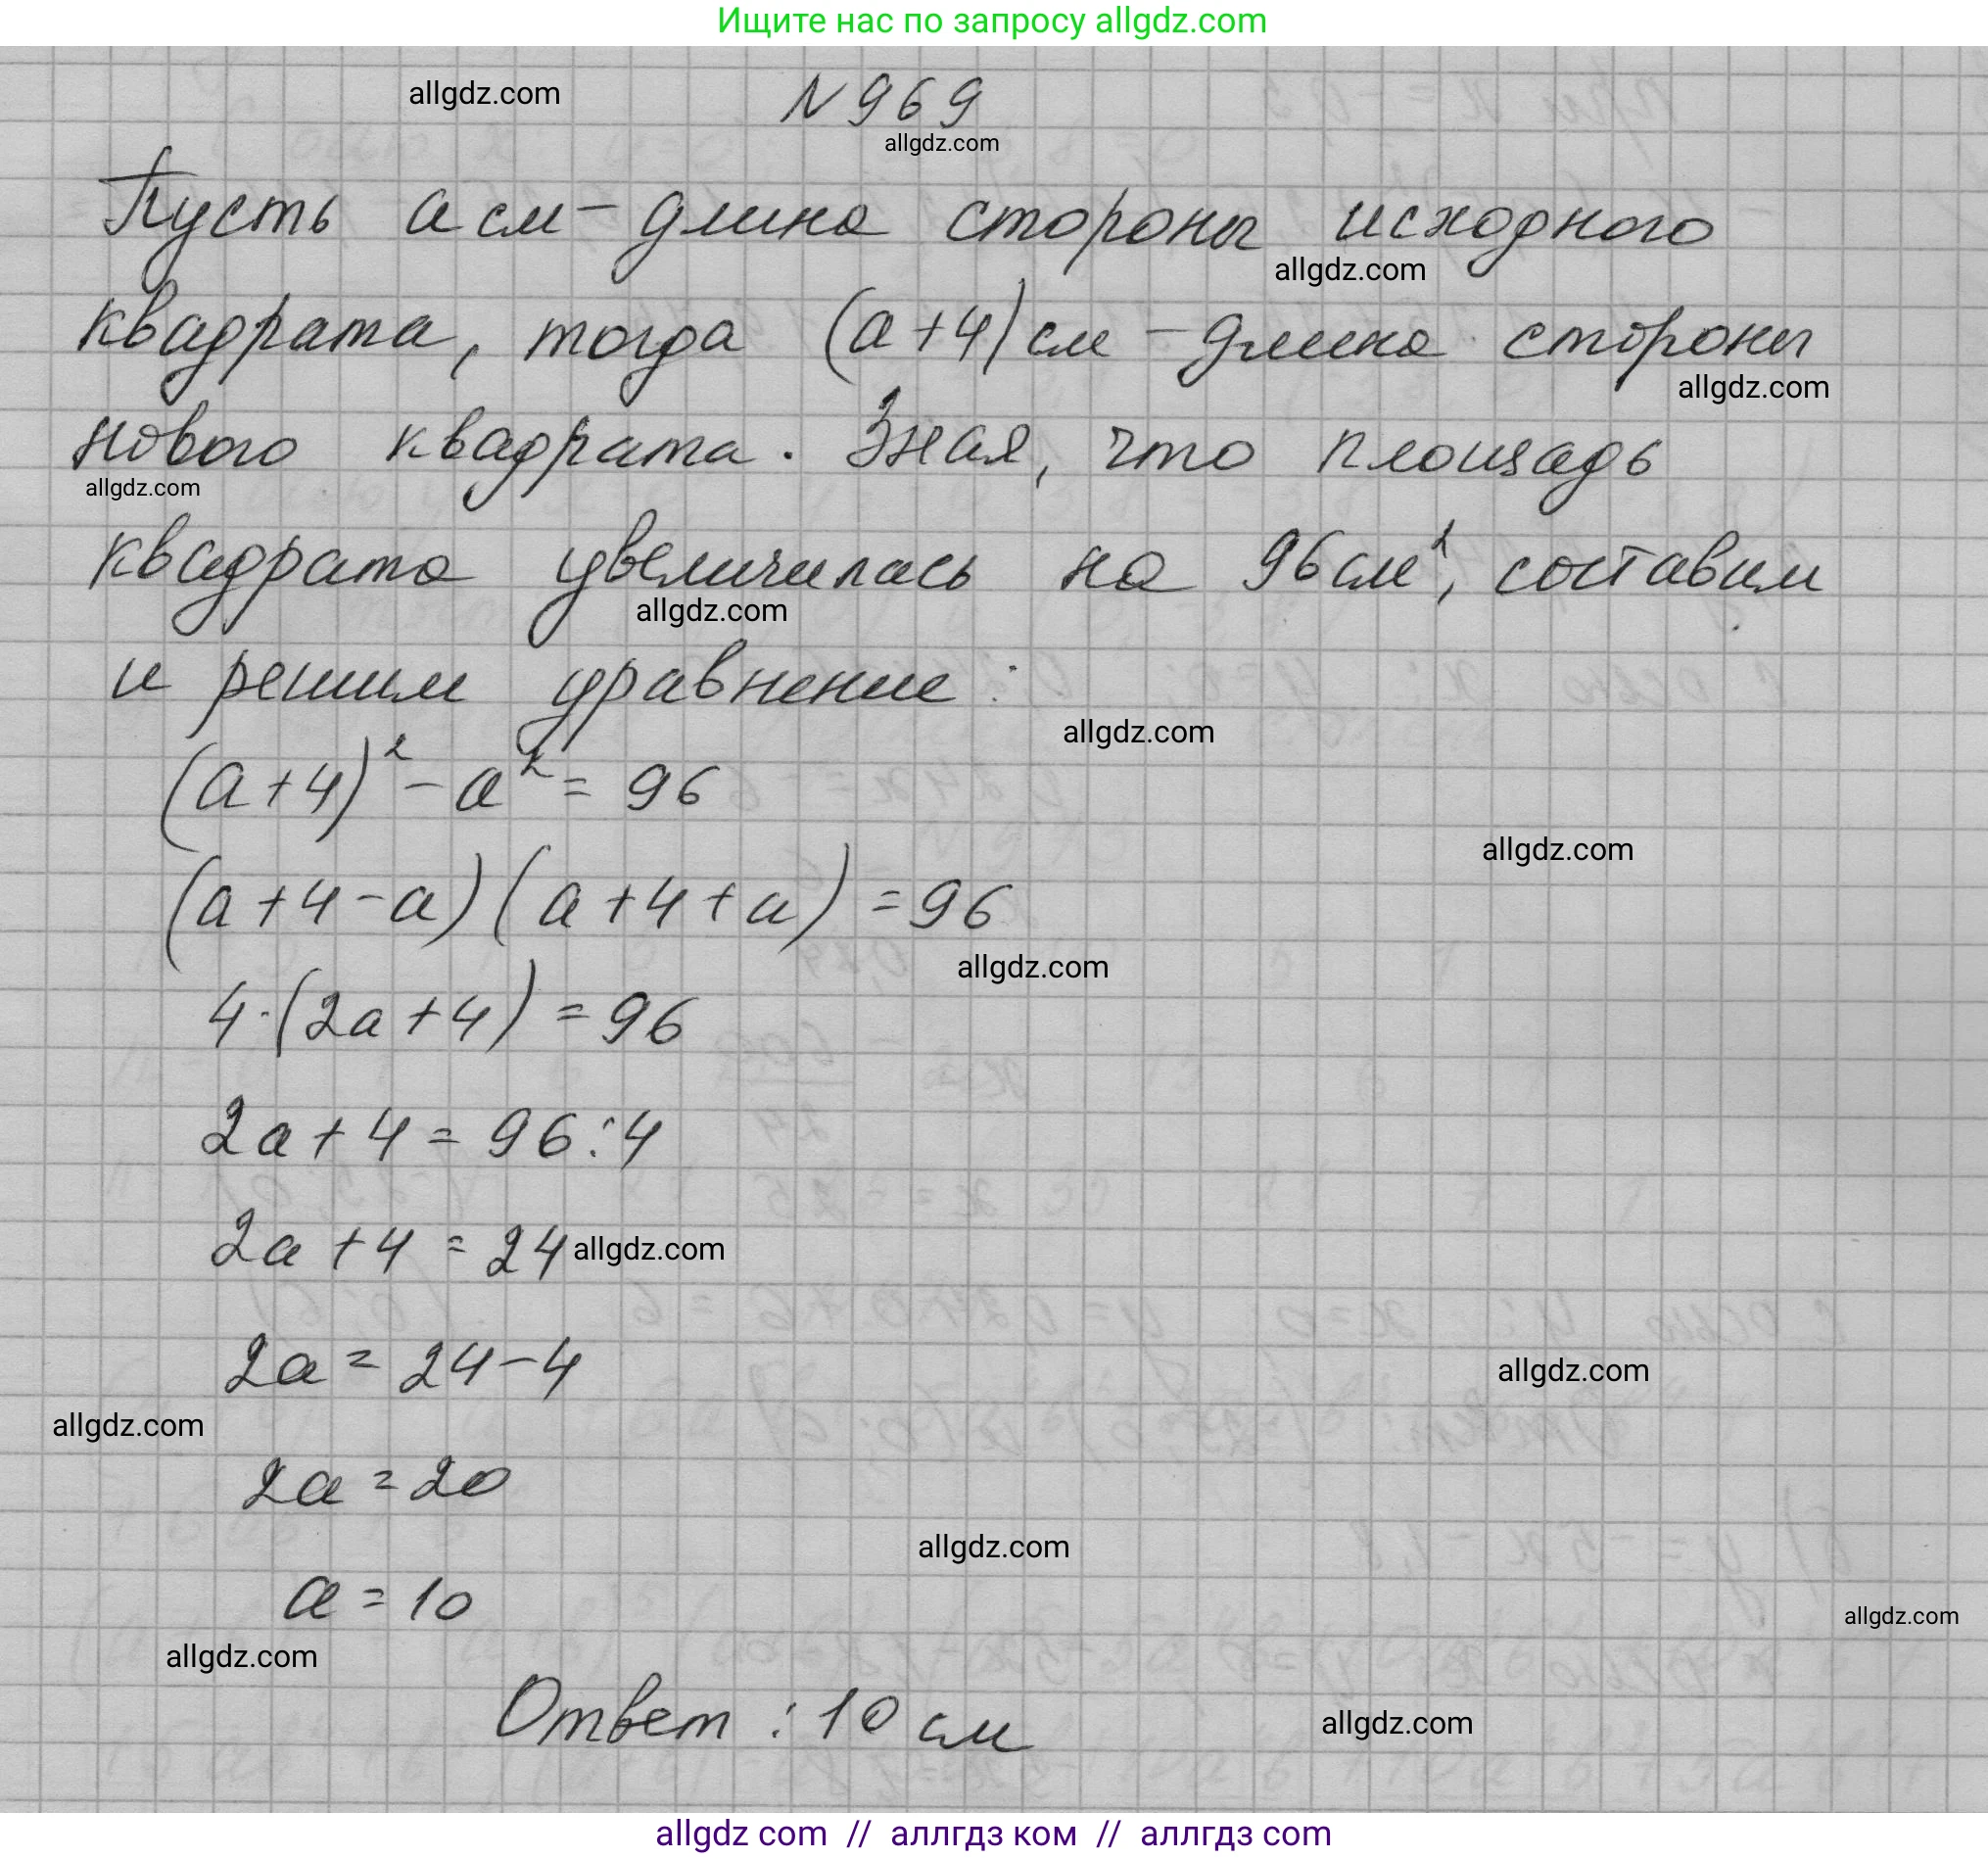 Ищите нас по запросу allgdz.com
allgdz.com
N 969
allgdz.com
Пусть a см – длина стороны исходного
allgdz.com
квадрата, тогда (a+4) см – длина стороны
allgdz.com
нового квадрата. Зная, что площадь
allgdz.com
квадрата увеличилась на 96 см², составим
allgdz.com
и решим уравнение:
allgdz.com
(a+4)² – a² = 96
allgdz.com
(a+4-a)(a+4+a) = 96
allgdz.com
4·(2a+4) = 96
2a+4 = 96:4
2a+4 = 24
allgdz.com
2a = 24-4
allgdz.com
allgdz.com
2a = 20
allgdz.com
a = 10
allgdz.com
allgdz.com
Ответ: 10 см
allgdz.com
allgdz com // аллгдз ком // аллгдз com